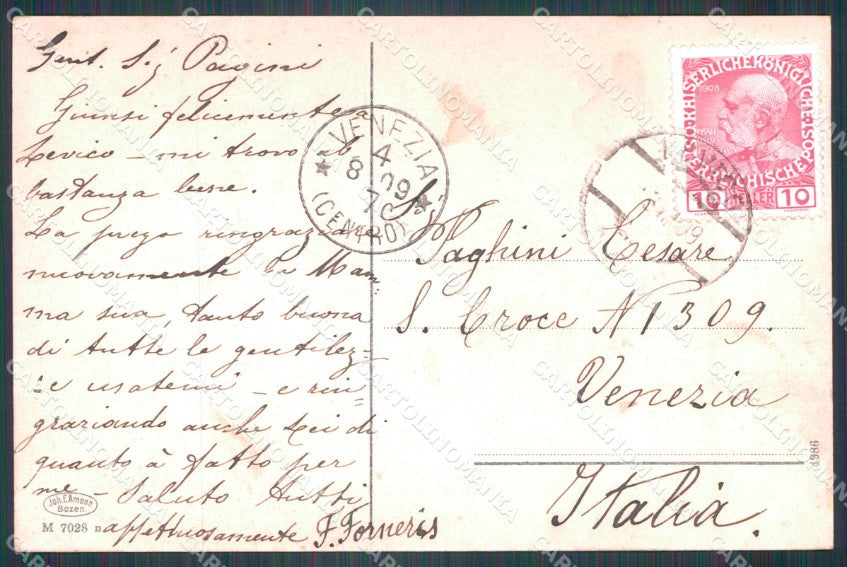 Gent. Sig Pagini
Giunsi felicemente a
Levico - mi trovo
bastanza bene.
La prego ringraziar
nuovamente la Mam=
ma sua, tanto buona
di tutte le gentilez=
=e usatemi - e rin=
graziando anche Lei di
quanto à fatto per
me - Saluto tutti
affettuosamente F. Forneris
Joh. F. Amonn
Bozen
M 7028 D
VENEZIA
4
8 09
(CENTRO)
1908
10 10
Paghini Cesare
S. Croce N 1309.
Venezia
Italia.
4986
CARTOLINOMANIA